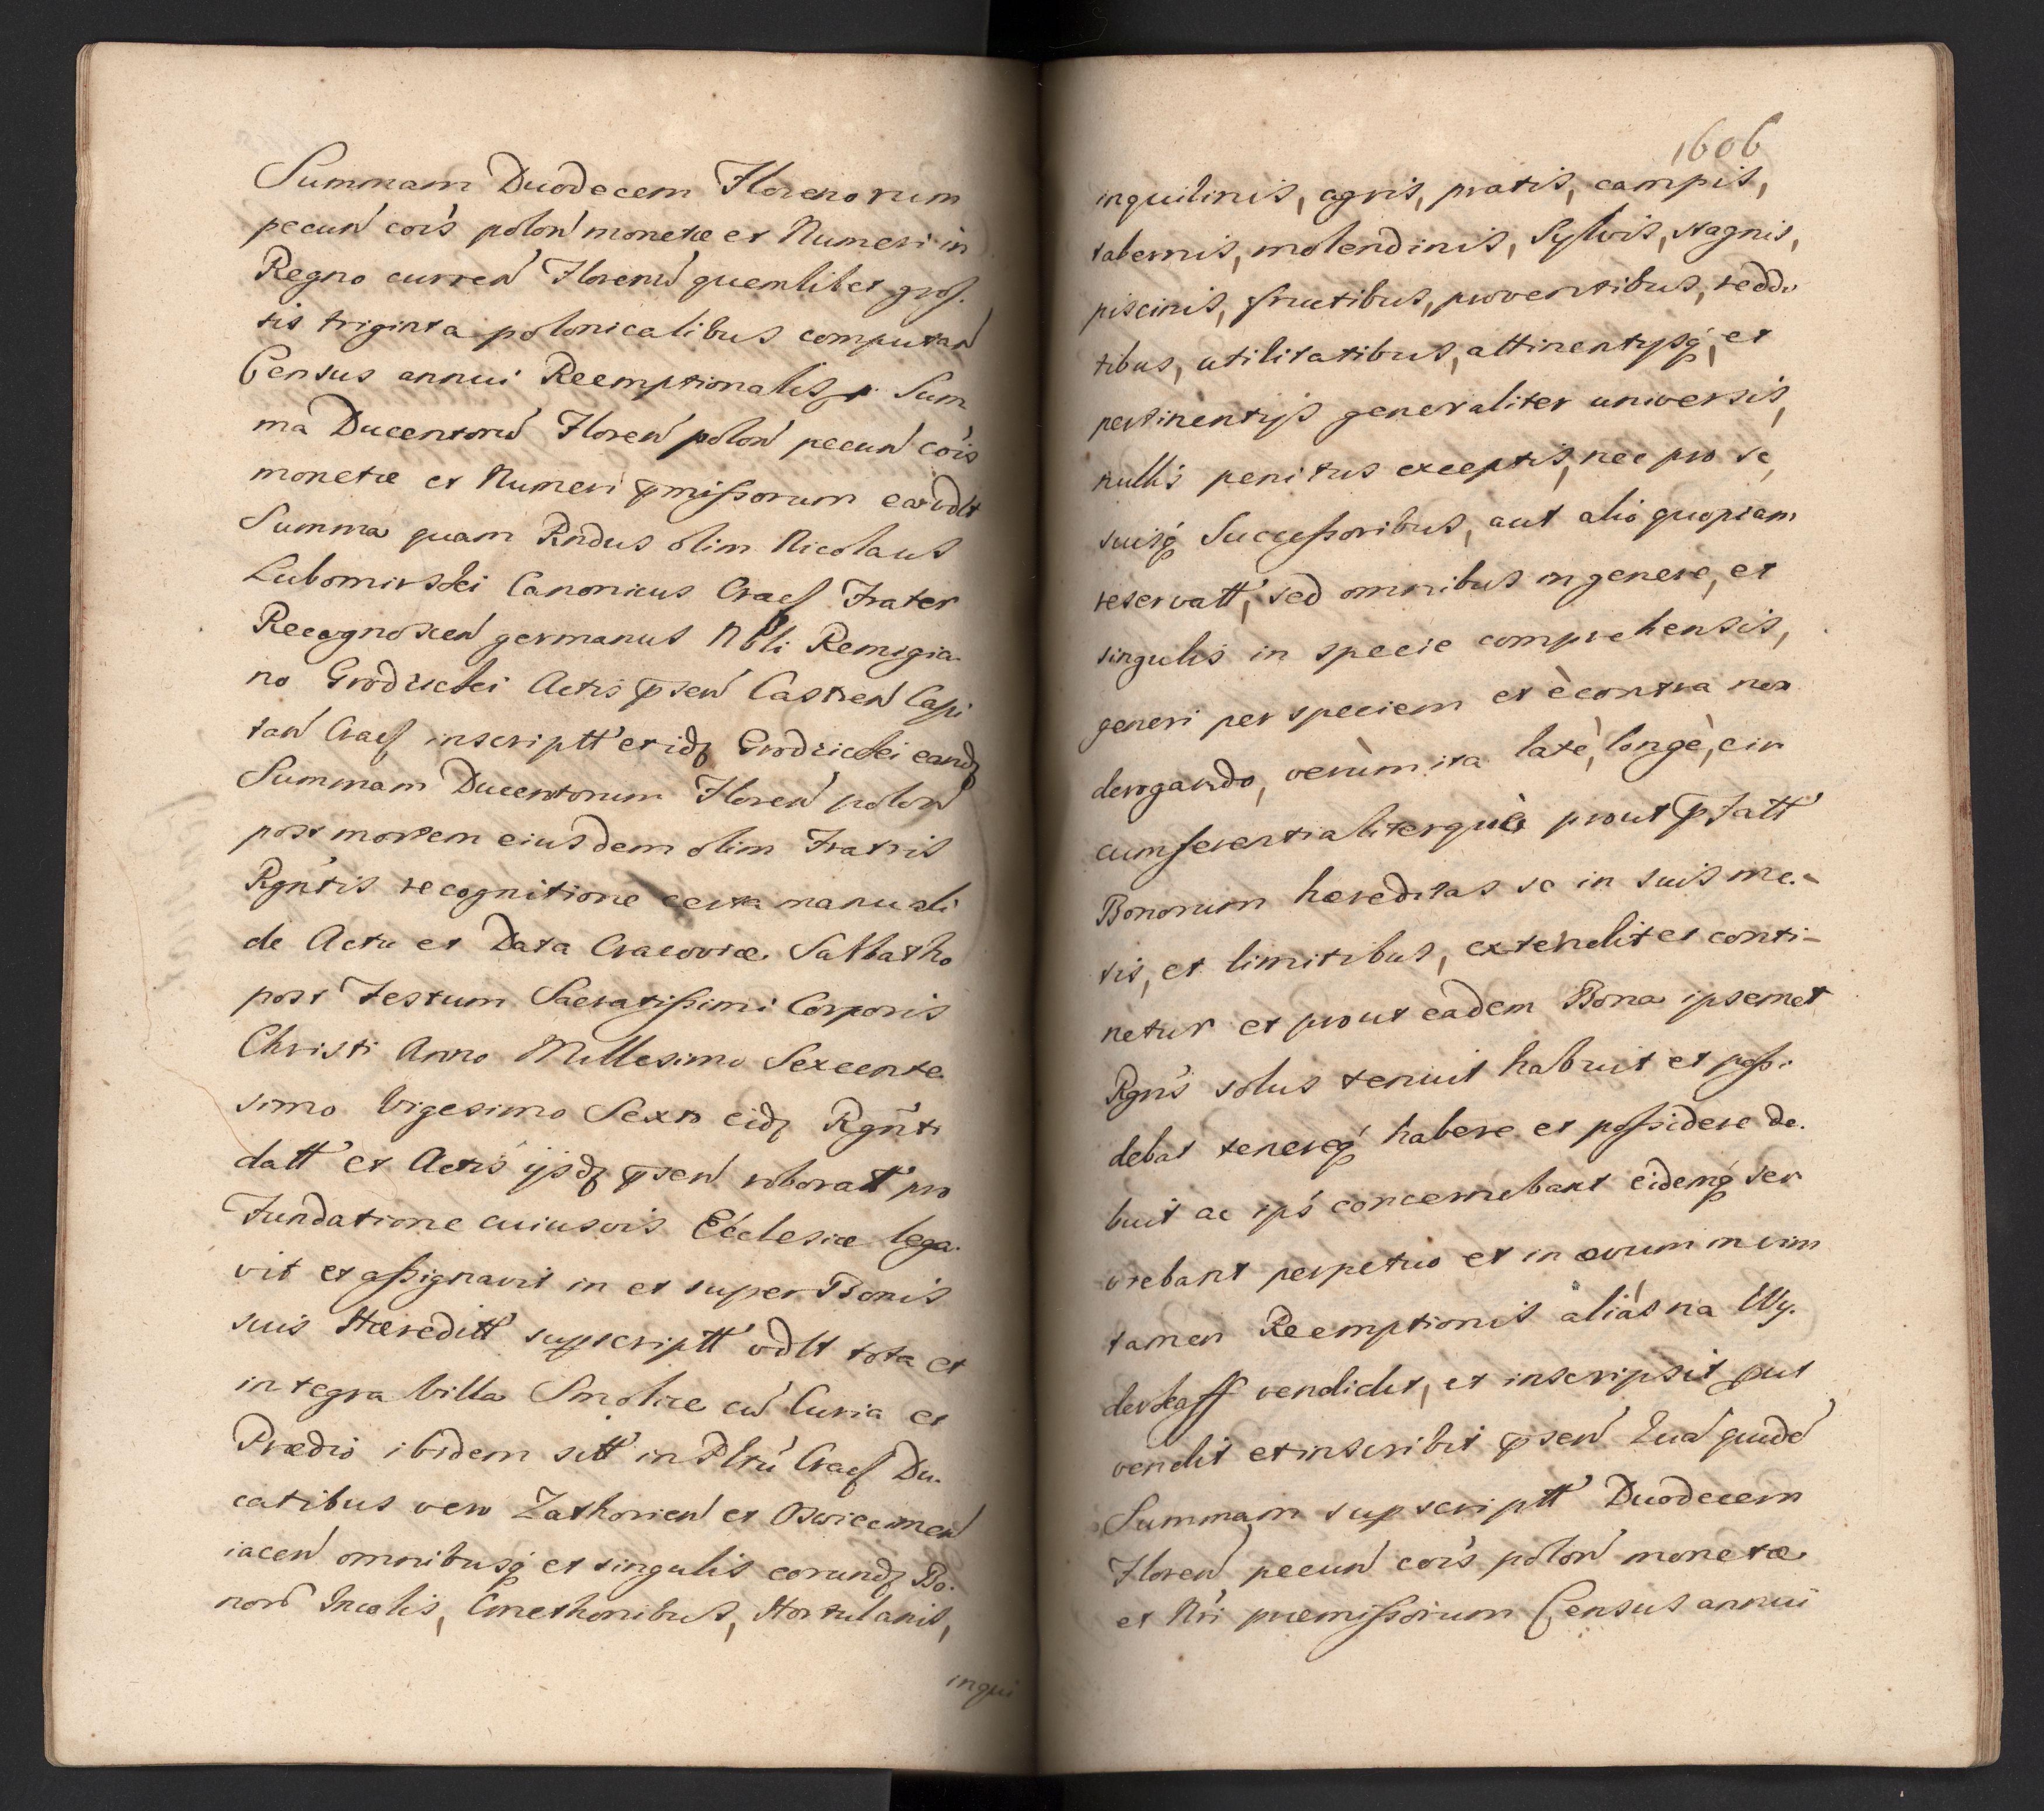 Summam Duodecem Florenorum
pecun̄ cois polon̄ monetæ et Numeri in
Regno curren̄ Floren̄ quemlibet gros-
sis triginta polonicalibus computan̄
Census annui Reemptionalis Sum
ma Ducentorū Floren̄ polon̄ pecun̄ cois
monetæ et Numeri pmissorum eavdlt
Summa quam Rndus olim Nicolaus
Lubomirski Canonicus Crac Frater
Recognoscen̄ germanus Nbli Remigia
no Grodzicki Actis psen̄ Castren̄ Capi
tan̄ Crac inscriptt et idq Grodzicki eandq
Summam Ducentorum Floren̄ polon̄
post mortem eiusdem olim Fratris
Rgntis recognitione certa manuali
de Actu et Data Cracoviæ Sabbatho
post Festum Sacratissimi Corporis
Christi Anno Millesimo Sexcente
simo Vigesimo Sexto eidq Rgnti
datt et Actis ijsdq psen̄ roboratt pro
Fundatione cuiusvis Ecclesiæ lega-
vit et assignavit in et super Bonis
suis Hæreditt supscriptt vdlt tota et
integra Villa Smolice cū Curia et
Prædio ibidem sitt in Pltū Crac Du-
catibus vero Zathorien̄ et Oswiecimen̄
iacen̄ omnibusq et singulis eorundq Bo-
norū Incolis, Cmethonibus, Hortulanis,
inqui
1606
inquilinis, agris, pratis, campis,
tabernis, molendinis, Sylvis, stagnis,
piscinis, fructibus, proventibus, reddi
tibus, utilitatibus, attinentijsq, et
pertinentijs generaliter universis,
nullis penitus exceptis, nec pro se,
suisq Successoribus, aut alio quopiam
reservatt, sed omnibus in genere, et
singulis in specie comprehensis,
generi per speciem et è contra non
derogando, verùm ita latè, longè, cir
cumferentialiterquè prout pfatt
Bonorum hæreditas se in suis me-
tis, et limitibus, extendit et conti-
netur et prout eadem Bona ipsemet
Rgns solus tenuit habuit et possi-
debat tenereq habere et possidere de-
buit ac ips concernebant eidemq ser
viebant perpetuo et in ævum in vim
tamen Reemptionis aliàs na Wy-
derkaff vendidit, et inscripsit put
vendit et inscribit psen̄ Quā quidē
Summam supscriptt Duodecem
Floren̄ pecun̄ cois polon̄ monetæ
et Nri præmissorum Census annui